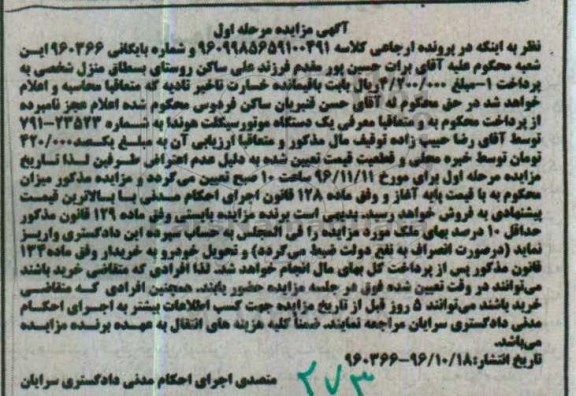 آگهی مزایده مرحله اول
نظر به اینکه در پرونده ارجاعی کلاسه ۹۶۰۹۹۸۵۶۵۹۱۰۰۴۹۱ و شماره بایگانی ۹۶۰۳۶۶ این
شعبه محکوم علیه آقای برات حسین پور مقدم فرزند علی ساکن روستای بسطاق منزل شخصی به
پرداخت ۱-مبلغ ۴/۷۰۰/۰۰۰ریال بابت باقیمانده خسارت تاخیر تادیه که متعاقبا محاسبه و اعلام
خواهد شد در حق محکوم له آقای حسن قنبریان ساکن فردوس محکوم شده اعلام عجز نامبرده
از پرداخت محکوم به و متعاقبا معرفی یک دستگاه موتورسیکلت هوندا به شماره ۲۳۵۲۳-۷۹۱
توسط آقای رضا حبیب زاده توقیف مال مذکور و متعاقبا ارزیابی آن به مبلغ یکصد۴۲۰/۰۰۰
تومان توسط خبره محلی و قطعیت قیمت تعیین شده به دلیل عدم اعتراض طرفین لذا تاریخ
مزایده مرحله اول برای مورخ ۹۶/۱۱/۱۱ ساعت ۱۰ صبح تعیین می‌گردد و مزایده مذکور میزان
محکوم به با قیمت پایه آغاز و وفق ماده ۱۲۸ قانون اجرای احکام مدنی با بالاترین قیمت
پیشنهادی به فروش خواهد رسید. بدیهی است برنده مزایده بایستی وفق ماده ۱۲۹ قانون مذکور
حداقل ۱۰ درصد بهای ملک مورد مزایده را فی المجلس به حساب سپرده این دادگستری واریز
نماید (درصورت انصراف به نفع دولت ضبط می‌گردد) و تحویل خودرو به خریدار وفق ماده۱۳۳
قانون مذکور پس از پرداخت کل بهای مال انجام خواهد شد. لذا افرادی که متقاضی خرید باشند
می‌توانند در وقت تعیین شده فوق در جلسه مزایده حضور یابند. همچنین افرادی که متقاضی
خرید باشند می‌توانند ۵ روز قبل از تاریخ مزایده جهت کسب اطلاعات بیشتر به اجرای احکام
مدنی دادگستری سرایان مراجعه نمایند. ضمنا کلیه هزینه های انتقال به عهده برنده مزایده
می‌باشد.
تاریخ انتشار:۹۶/۱۰/۱۸-۹۶۰۳۶۶
متصدی اجرای احکام مدنی دادگستری سرایان
۲۷۳